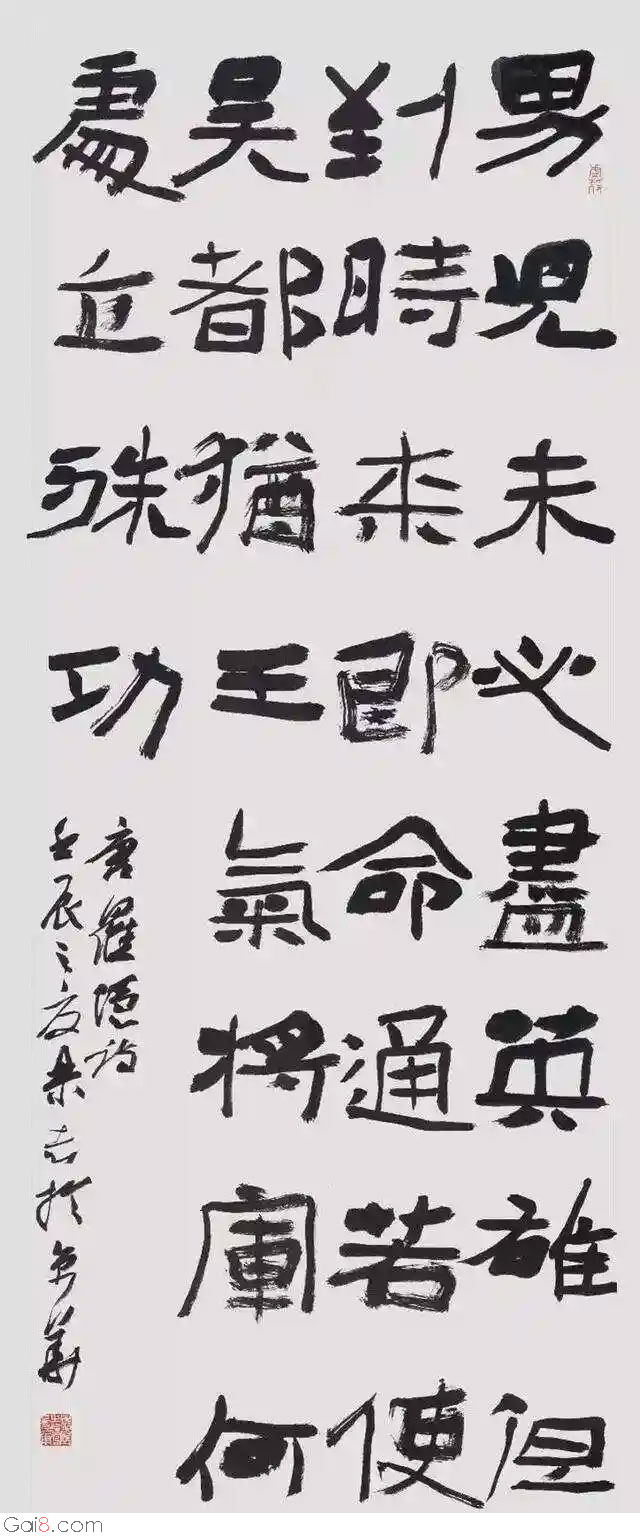 男兒未必盡英雄但
到時來即命通若使
吳都猶王氣將軍何
處立殊功
唐羅隱詩
壬辰之夏志於京華
Gai8.com